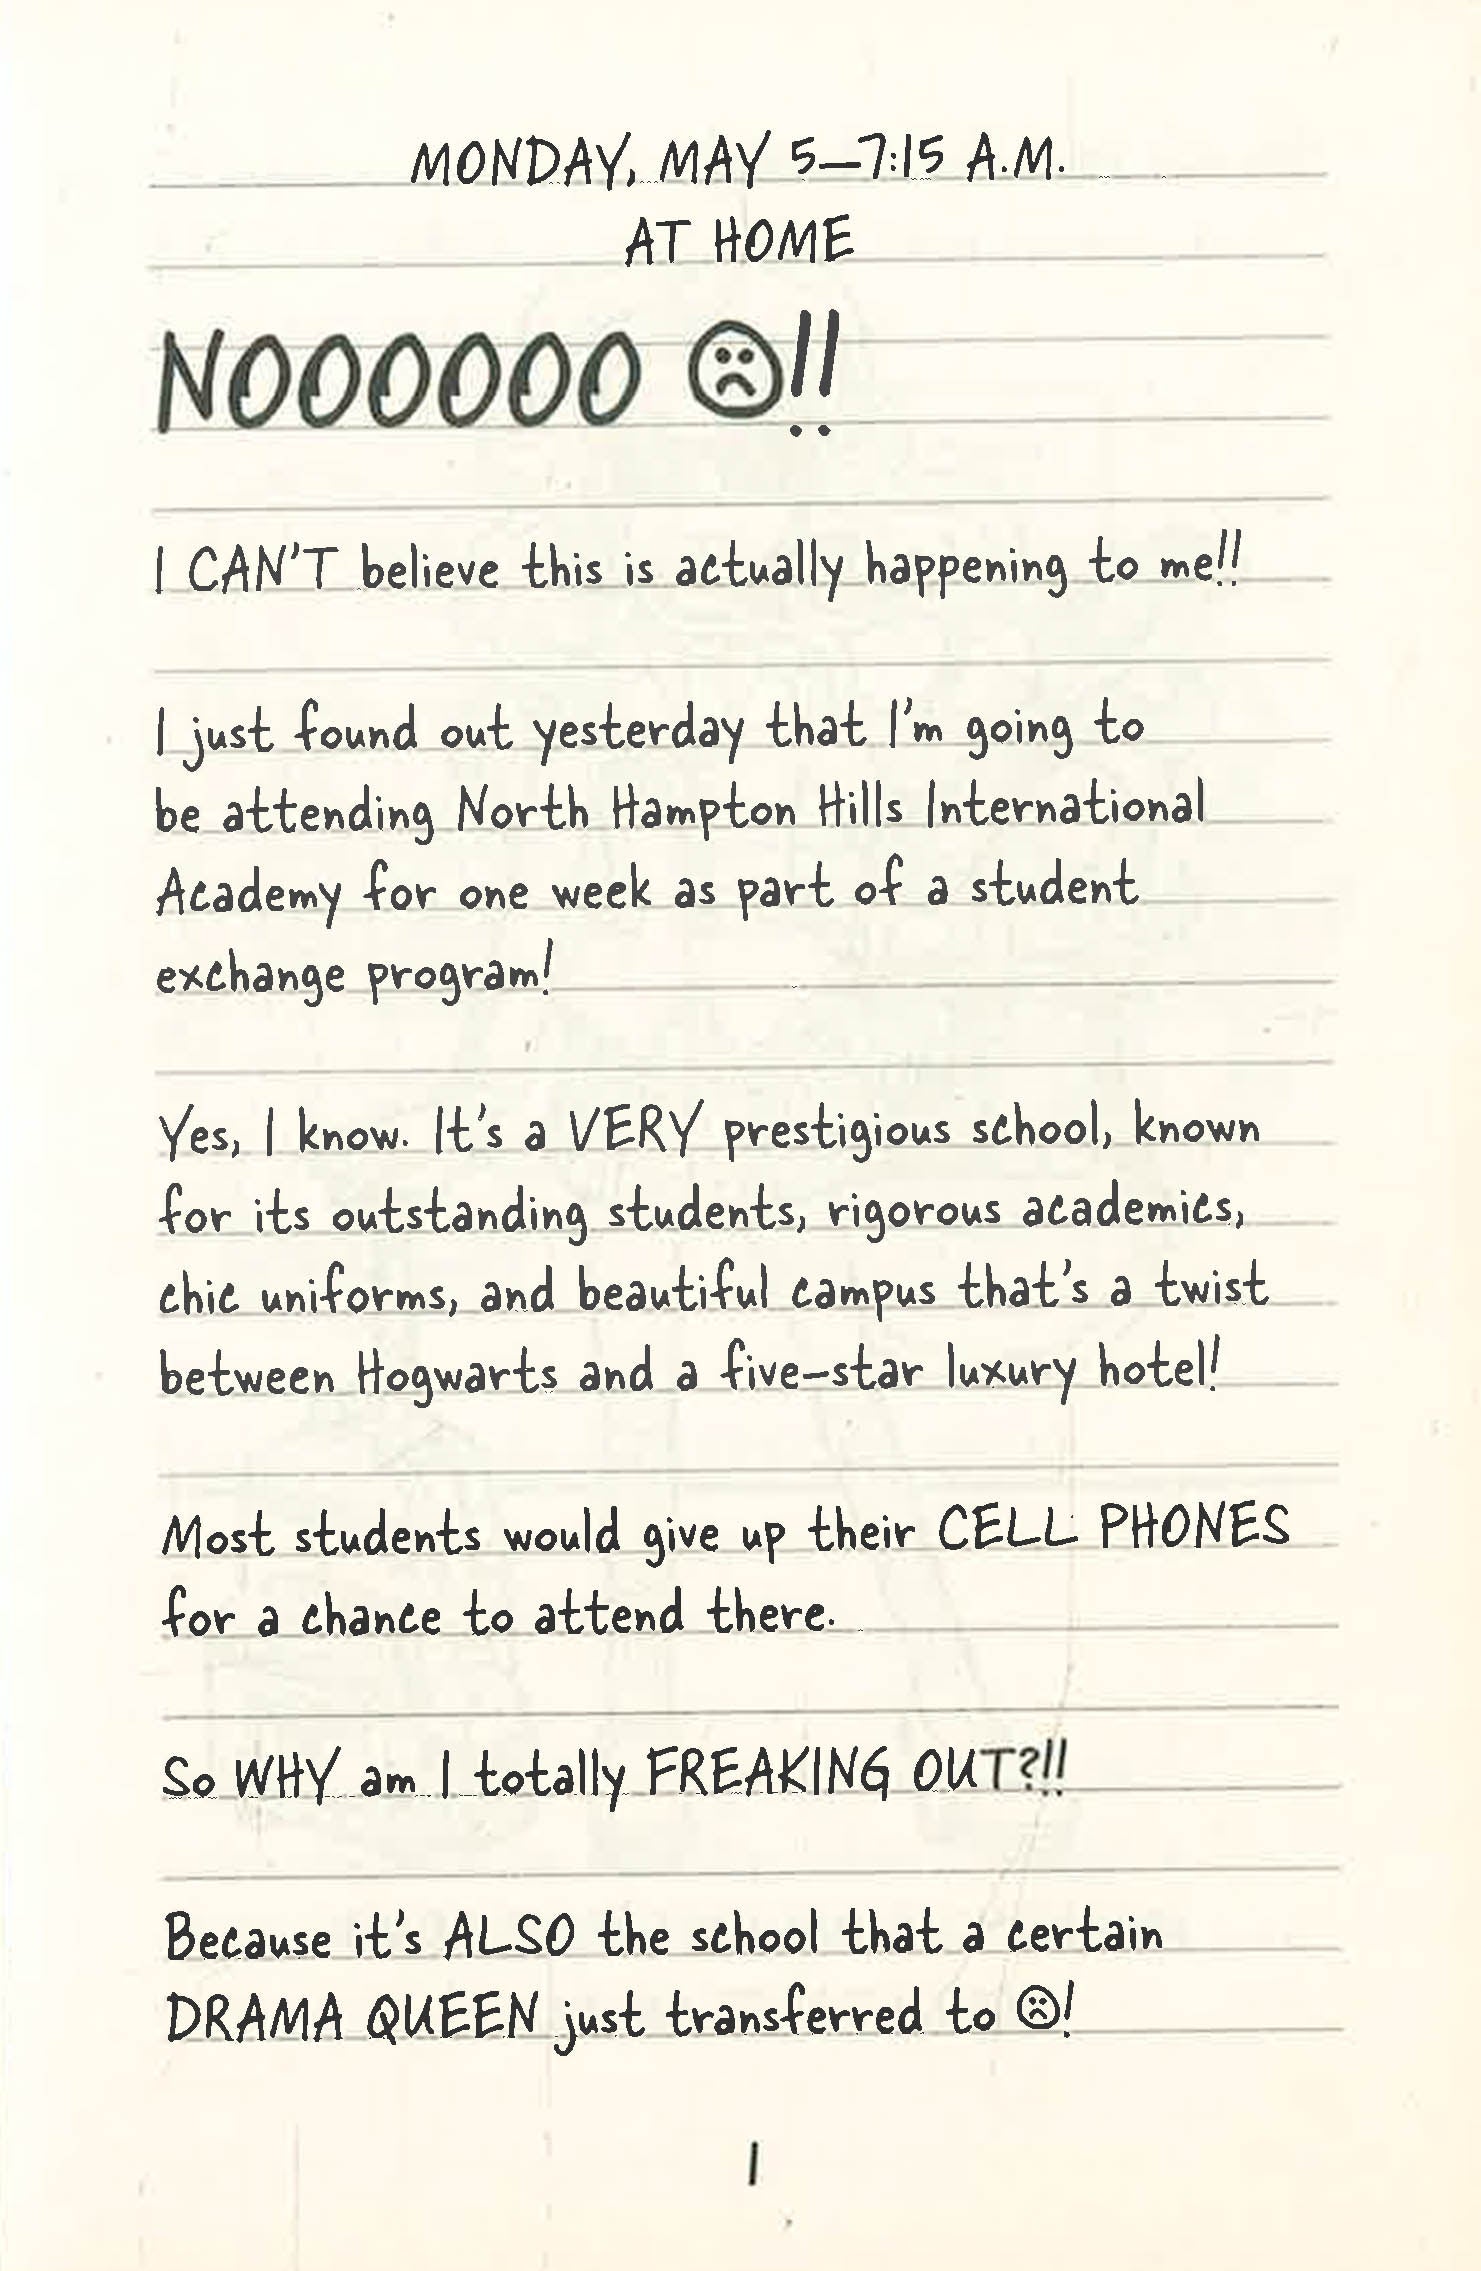 MONDAY, MAY 5–7:15 A.M.
AT HOME
NOOOOOO ☹!!
I CAN'T believe this is actually happening to me!!
I just found out yesterday that I'm going to
be attending North Hampton Hills International
Academy for one week as part of a student
exchange program!
Yes, I know. It's a VERY prestigious school, known
for its outstanding students, rigorous academics,
chic uniforms, and beautiful campus that's a twist
between Hogwarts and a five-star luxury hotel!
Most students would give up their CELL PHONES
for a chance to attend there.
So WHY am I totally FREAKING OUT?!!
Because it's ALSO the school that a certain
DRAMA QUEEN just transferred to ☹!
1